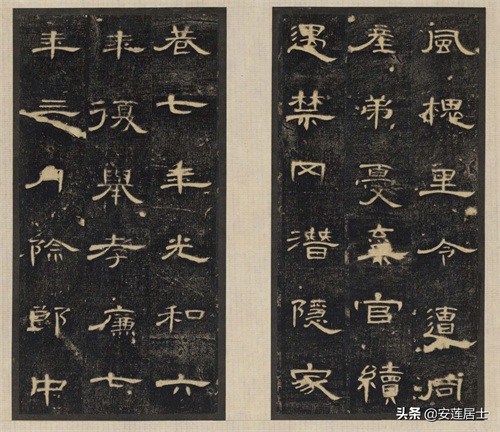 風槐里令遭同
產弟憂棄官續
遇禁网潛隱家
巷七年光和六
年復舉孝廉七
年三月除郎中
头条 @安莲居士